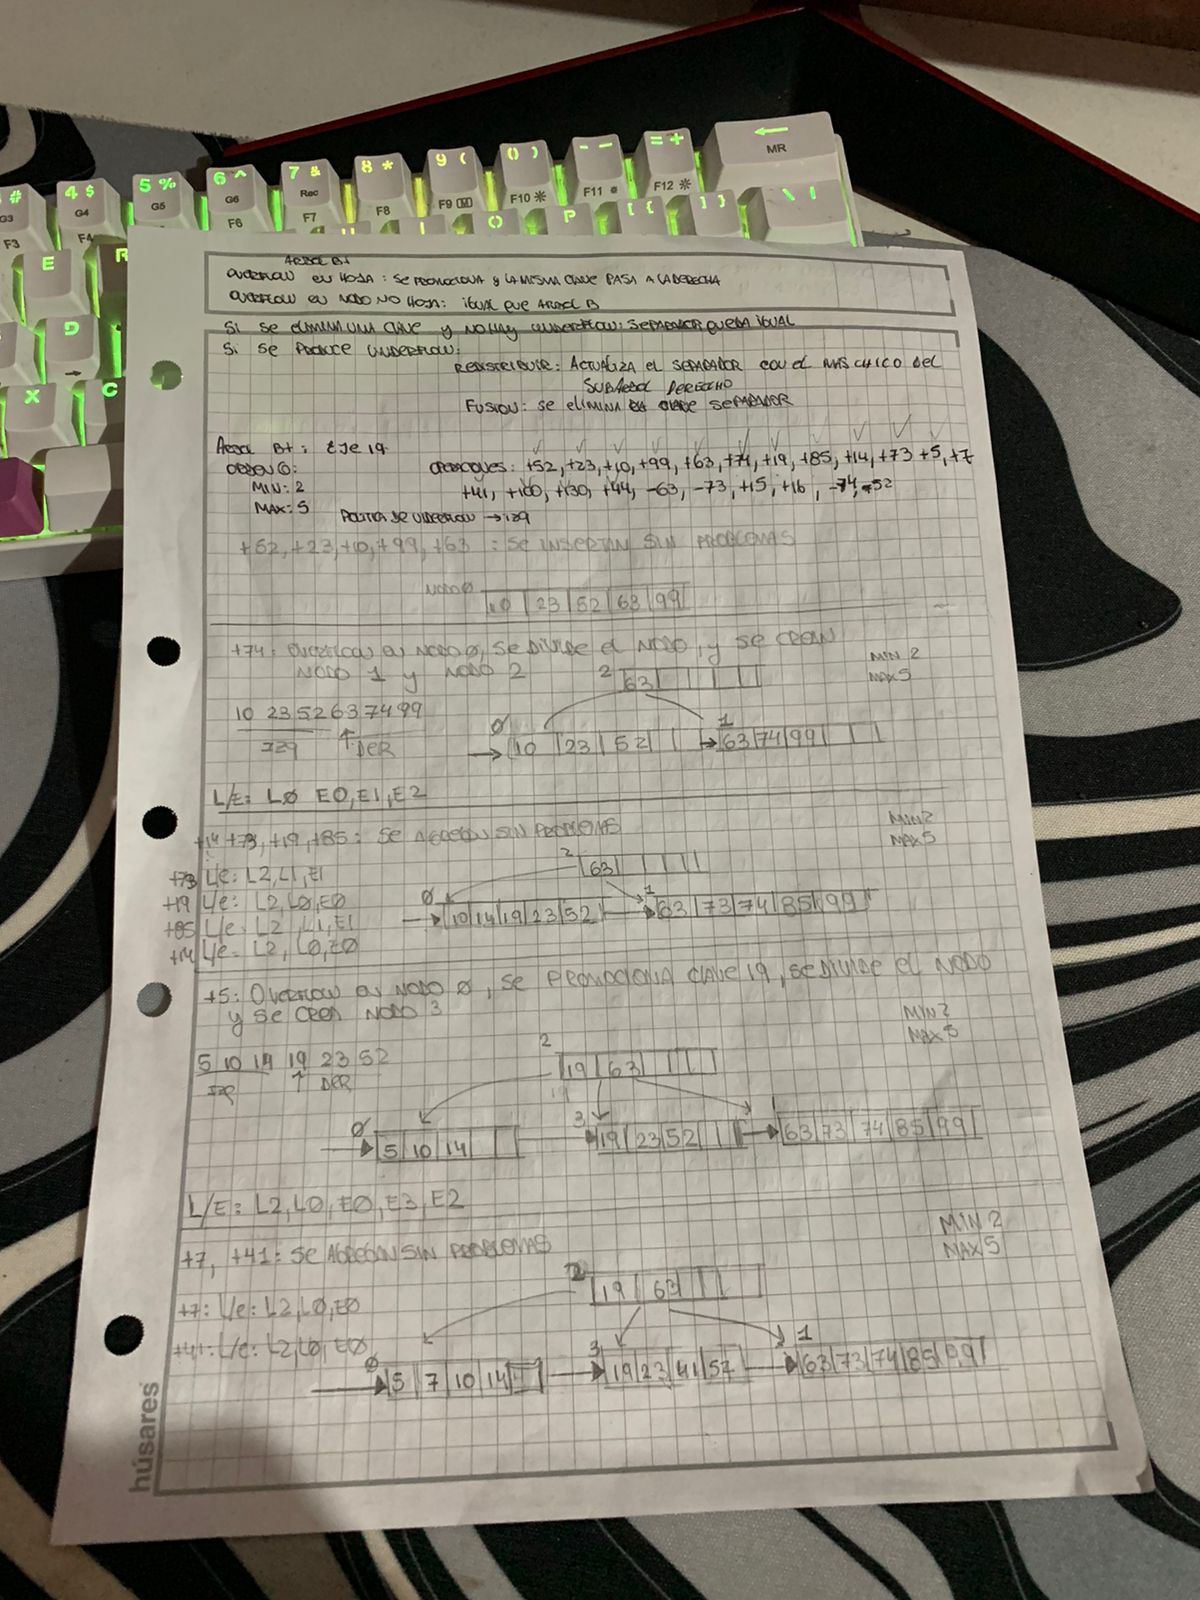 # G3 F3
4 $ G4 F4
5 % G5
6 ^ G6 F6
7 & Rec F7
8 * F8
9 ( F9
0 ) F10
- - F11
= + F12
← MR
O P [ { ] } \ |
E R
D
X C
ARBOL B+
OVERFLOW EN HOJA: SE PROMOCIONA Y LA MISMA CLAVE PASA A LA DERECHA
OVERFLOW EN NODO NO HOJA: IGUAL QUE ARBOL B
SI SE ELIMINA UNA CLAVE Y NO HAY UNDERFLOW: SEPARADOR QUEDA IGUAL
SI SE PRODUCE UNDERFLOW:
REDISTRIBUIR: ACTUALIZA EL SEPARADOR CON EL MAS CHICO DEL
SUBARBOL DERECHO
FUSION: SE ELIMINA LA CLAVE SEPARADOR
ARBOL B+: EJE 19
ORDEN 6: OPERACIONES: +52, +23, +10, +99, +63, +74, +19, +85, +14, +73 +5, +7
MIN: 2 +41, +100, +130, +44, -63, -73, +15, +16, -74, -52
MAX: 5 POLITICA DE UNDERFLOW → IZQ
+52, +23, +10, +99, +63 : SE INSERTAN SIN PROBLEMAS
NODO 0 10 23 52 63 99
+74: OVERFLOW EN NODO 0, SE DIVIDE EL NODO, Y SE CREAN
NODO 1 Y NODO 2
MIN 2
MAX 5
2 63
10 23 52 63 74 99
IZQ ↑ DER
0 10 23 52 1 63 74 99
L/E: L0 E0, E1, E2
+14 +73, +19, +85: SE AGREGAN SIN PROBLEMAS
MIN 2
MAX 5
2 63
+73 L/E: L2, L1, E1
+19 L/E: L2, L0, E0
+85 L/E: L2, L1, E1
+14 L/E: L2, L0, E0
0 10 14 19 23 52 1 63 73 74 85 99
+5: OVERFLOW EN NODO 0, SE PROMOCIONA CLAVE 19, SE DIVIDE EL NODO
Y SE CREA NODO 3
MIN 2
MAX 5
5 10 14 19 23 52
IZQ ↑ DER
2 19 63
0 5 10 14 3 19 23 52 1 63 73 74 85 99
L/E: L2, L0, E0, E3, E2
+7, +41: SE AGREGAN SIN PROBLEMAS
MIN 2
MAX 5
2 19 63
+7: L/E: L2, L0, E0
+41: L/E: L2, L0, E0
0 5 7 10 14 3 19 23 41 52 1 63 73 74 85 99
húsares